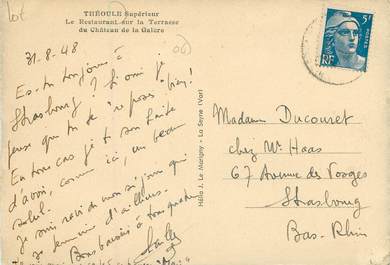 lot
THÉOULE Supérieur
Le Restaurant sur la Terrasse
du Château de la Galère
(06)
31-8-48
Es-tu toujours à
Strasbourg ? Si oui je
pense que tu te reposes bien !
En tous cas je te souhaite
d'avoir, comme ici, un beau
soleil.
Je suis ravi de mon séjour qui
se termine d'ailleurs.
Bons baisers à tous quatre
Hélio J. Le Marigny - La Seyne (Var)
5F
RF
POSTES
Madame Ducouret
chez Mr Haas
67 Avenue des Vosges
Strasbourg
Bas-Rhin